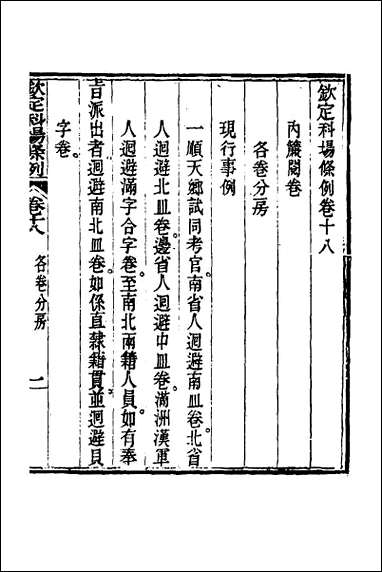 欽定科場條例卷十八
內簾閱卷
各卷分房
現行事例
一順天鄉試同考官南省人迴避南皿卷北省
人迴避北皿卷邊省人迴避中皿卷滿洲漢軍
人迴避滿字合字卷至南北兩籍人員如有奉
旨派出者迴避南北皿卷如係直隸籍貫並迴避貝
字卷
欽定科場條例 卷十八 各卷分房 一